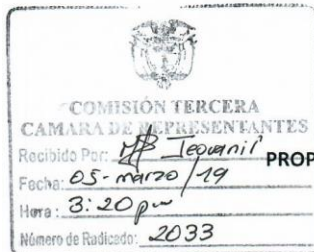 COMISIÓN TERCERA
CAMARA DE REPRESENTANTES
Recibido Por: Jeovanil
PROP
Fecha: 05-marzo/19
Hora: 3:20 pm
Número de Radicado: 2033